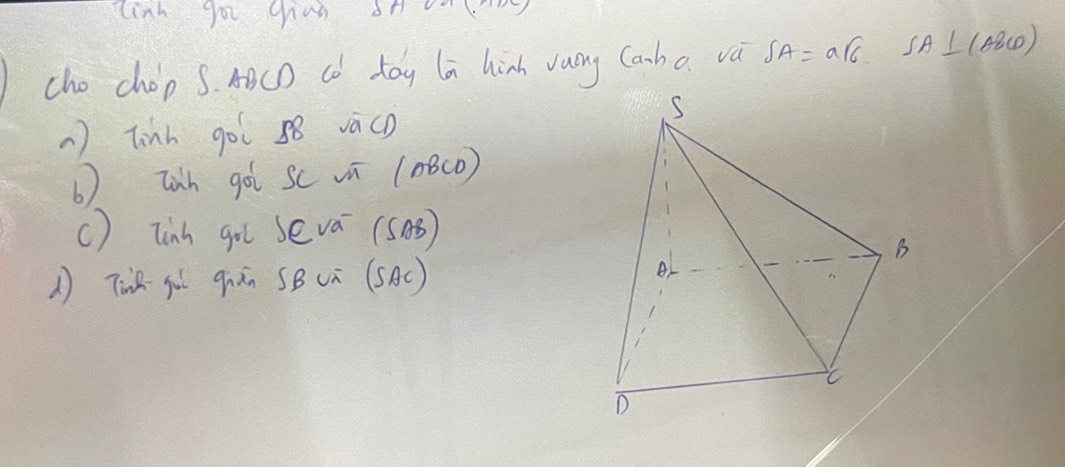 Tính góc giữa SA và (ABC)
) Cho chóp S.ABCD có đáy là hình vuông Cạnh a. và SA = a√6. SA ⊥ (ABCD)
a) Tính gói SB và CD
b) Tính gói SC và (ABCD)
c) Tính gói SC và (SAB)
d) Tính gói giữa SB và (SAC)
S
A
B
C
D